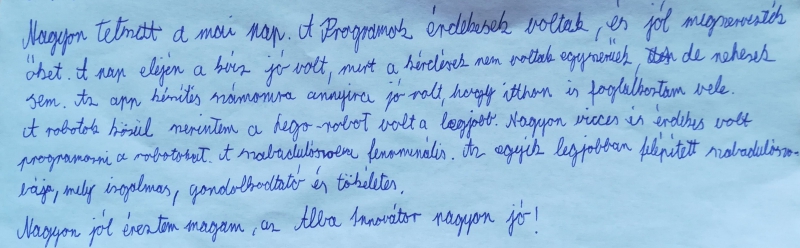 Nagyon tetszett a mai nap. A Programok érdekesek voltak, és jól megszervezték
őket. A nap elején a kvíz jó volt, mert a kérdések nem voltak egyszerűek, de nehezek
sem. Az app készítés számomra annyira jó volt, hogy itthon is foglalkoztam vele.
A robotok közül szerintem a Lego-robot volt a legjobb. Nagyon vicces és érdekes volt
programozni a robotokat. A szabadulószoba fenomenális. Az egyik legjobban felépített szabadulószo-
bája, mely izgalmas, gondolkodtató és tökéletes.
Nagyon jól éreztem magam, az Alba Innovátor nagyon jó!